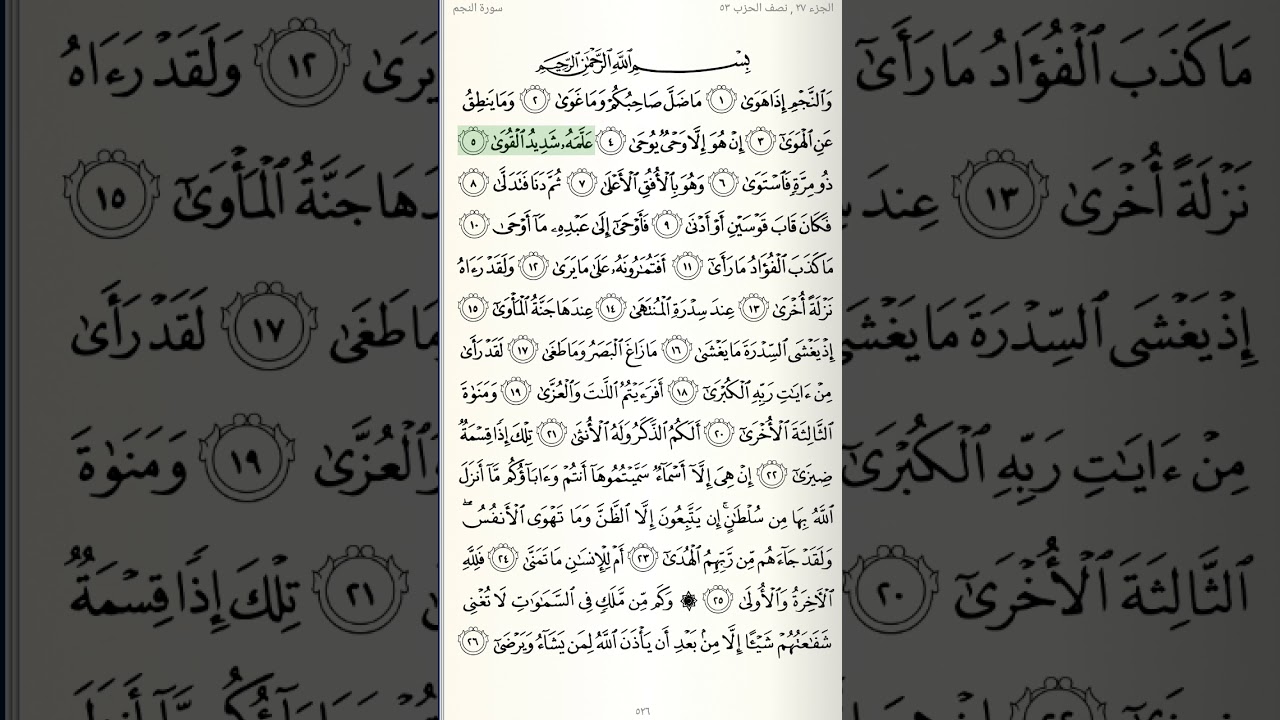 الجزء ٢٧ , نصف الحزب ٥٣
سورة النجم
بِسْمِ ٱللَّهِ ٱلرَّحْمَٰنِ ٱلرَّحِيمِ
وَٱلنَّجْمِ إِذَا هَوَىٰ ١ مَا ضَلَّ صَاحِبُكُمْ وَمَا غَوَىٰ ٢ وَمَا يَنطِقُ
عَنِ ٱلْهَوَىٰٓ ٣ إِنْ هُوَ إِلَّا وَحْىٌ يُوحَىٰ ٤ عَلَّمَهُۥ شَدِيدُ ٱلْقُوَىٰ ٥
ذُو مِرَّةٍ فَٱسْتَوَىٰ ٦ وَهُوَ بِٱلْأُفُقِ ٱلْأَعْلَىٰ ٧ ثُمَّ دَنَا فَتَدَلَّىٰ ٨
فَكَانَ قَابَ قَوْسَيْنِ أَوْ أَدْنَىٰ ٩ فَأَوْحَىٰٓ إِلَىٰ عَبْدِهِۦ مَآ أَوْحَىٰ ١٠
مَا كَذَبَ ٱلْفُؤَادُ مَا رَأَىٰٓ ١١ أَفَتُمَٰرُونَهُۥ عَلَىٰ مَا يَرَىٰ ١٢ وَلَقَدْ رَءَاهُ
نَزْلَةً أُخْرَىٰ ١٣ عِندَ سِدْرَةِ ٱلْمُنتَهَىٰ ١٤ عِندَهَا جَنَّةُ ٱلْمَأْوَىٰٓ ١٥
إِذْ يَغْشَى ٱلسِّدْرَةَ مَا يَغْشَىٰ ١٦ مَا زَاغَ ٱلْبَصَرُ وَمَا طَغَىٰ ١٧ لَقَدْ رَأَىٰ
مِنْ ءَايَٰتِ رَبِّهِ ٱلْكُبْرَىٰٓ ١٨ أَفَرَءَيْتُمُ ٱللَّٰتَ وَٱلْعُزَّىٰ ١٩ وَمَنَوٰةَ
ٱلثَّالِثَةَ ٱلْأُخْرَىٰٓ ٢٠ أَلَكُمُ ٱلذَّكَرُ وَلَهُ ٱلْأُنثَىٰ ٢١ تِلْكَ إِذًا قِسْمَةٌ
ضِيزَىٰٓ ٢٢ إِنْ هِىَ إِلَّآ أَسْمَآءٌ سَمَّيْتُمُوهَآ أَنتُمْ وَءَابَآؤُكُم مَّآ أَنزَلَ
ٱللَّهُ بِهَا مِن سُلْطَٰنٍ ۚ إِن يَتَّبِعُونَ إِلَّا ٱلظَّنَّ وَمَا تَهْوَى ٱلْأَنفُسُ ۖ
وَلَقَدْ جَآءَهُم مِّن رَّبِّهِمُ ٱلْهُدَىٰٓ ٢٣ أَمْ لِلْإِنسَٰنِ مَا تَمَنَّىٰ ٢٤ فَلِلَّهِ
ٱلْءَاخِرَةُ وَٱلْأُولَىٰ ٢٥ ۞ وَكَم مِّن مَّلَكٍ فِى ٱلسَّمَٰوَٰتِ لَا تُغْنِى
شَفَٰعَتُهُمْ شَيْـًٔا إِلَّا مِنۢ بَعْدِ أَن يَأْذَنَ ٱللَّهُ لِمَن يَشَآءُ وَيَرْضَىٰٓ ٢٦
٥٢٦